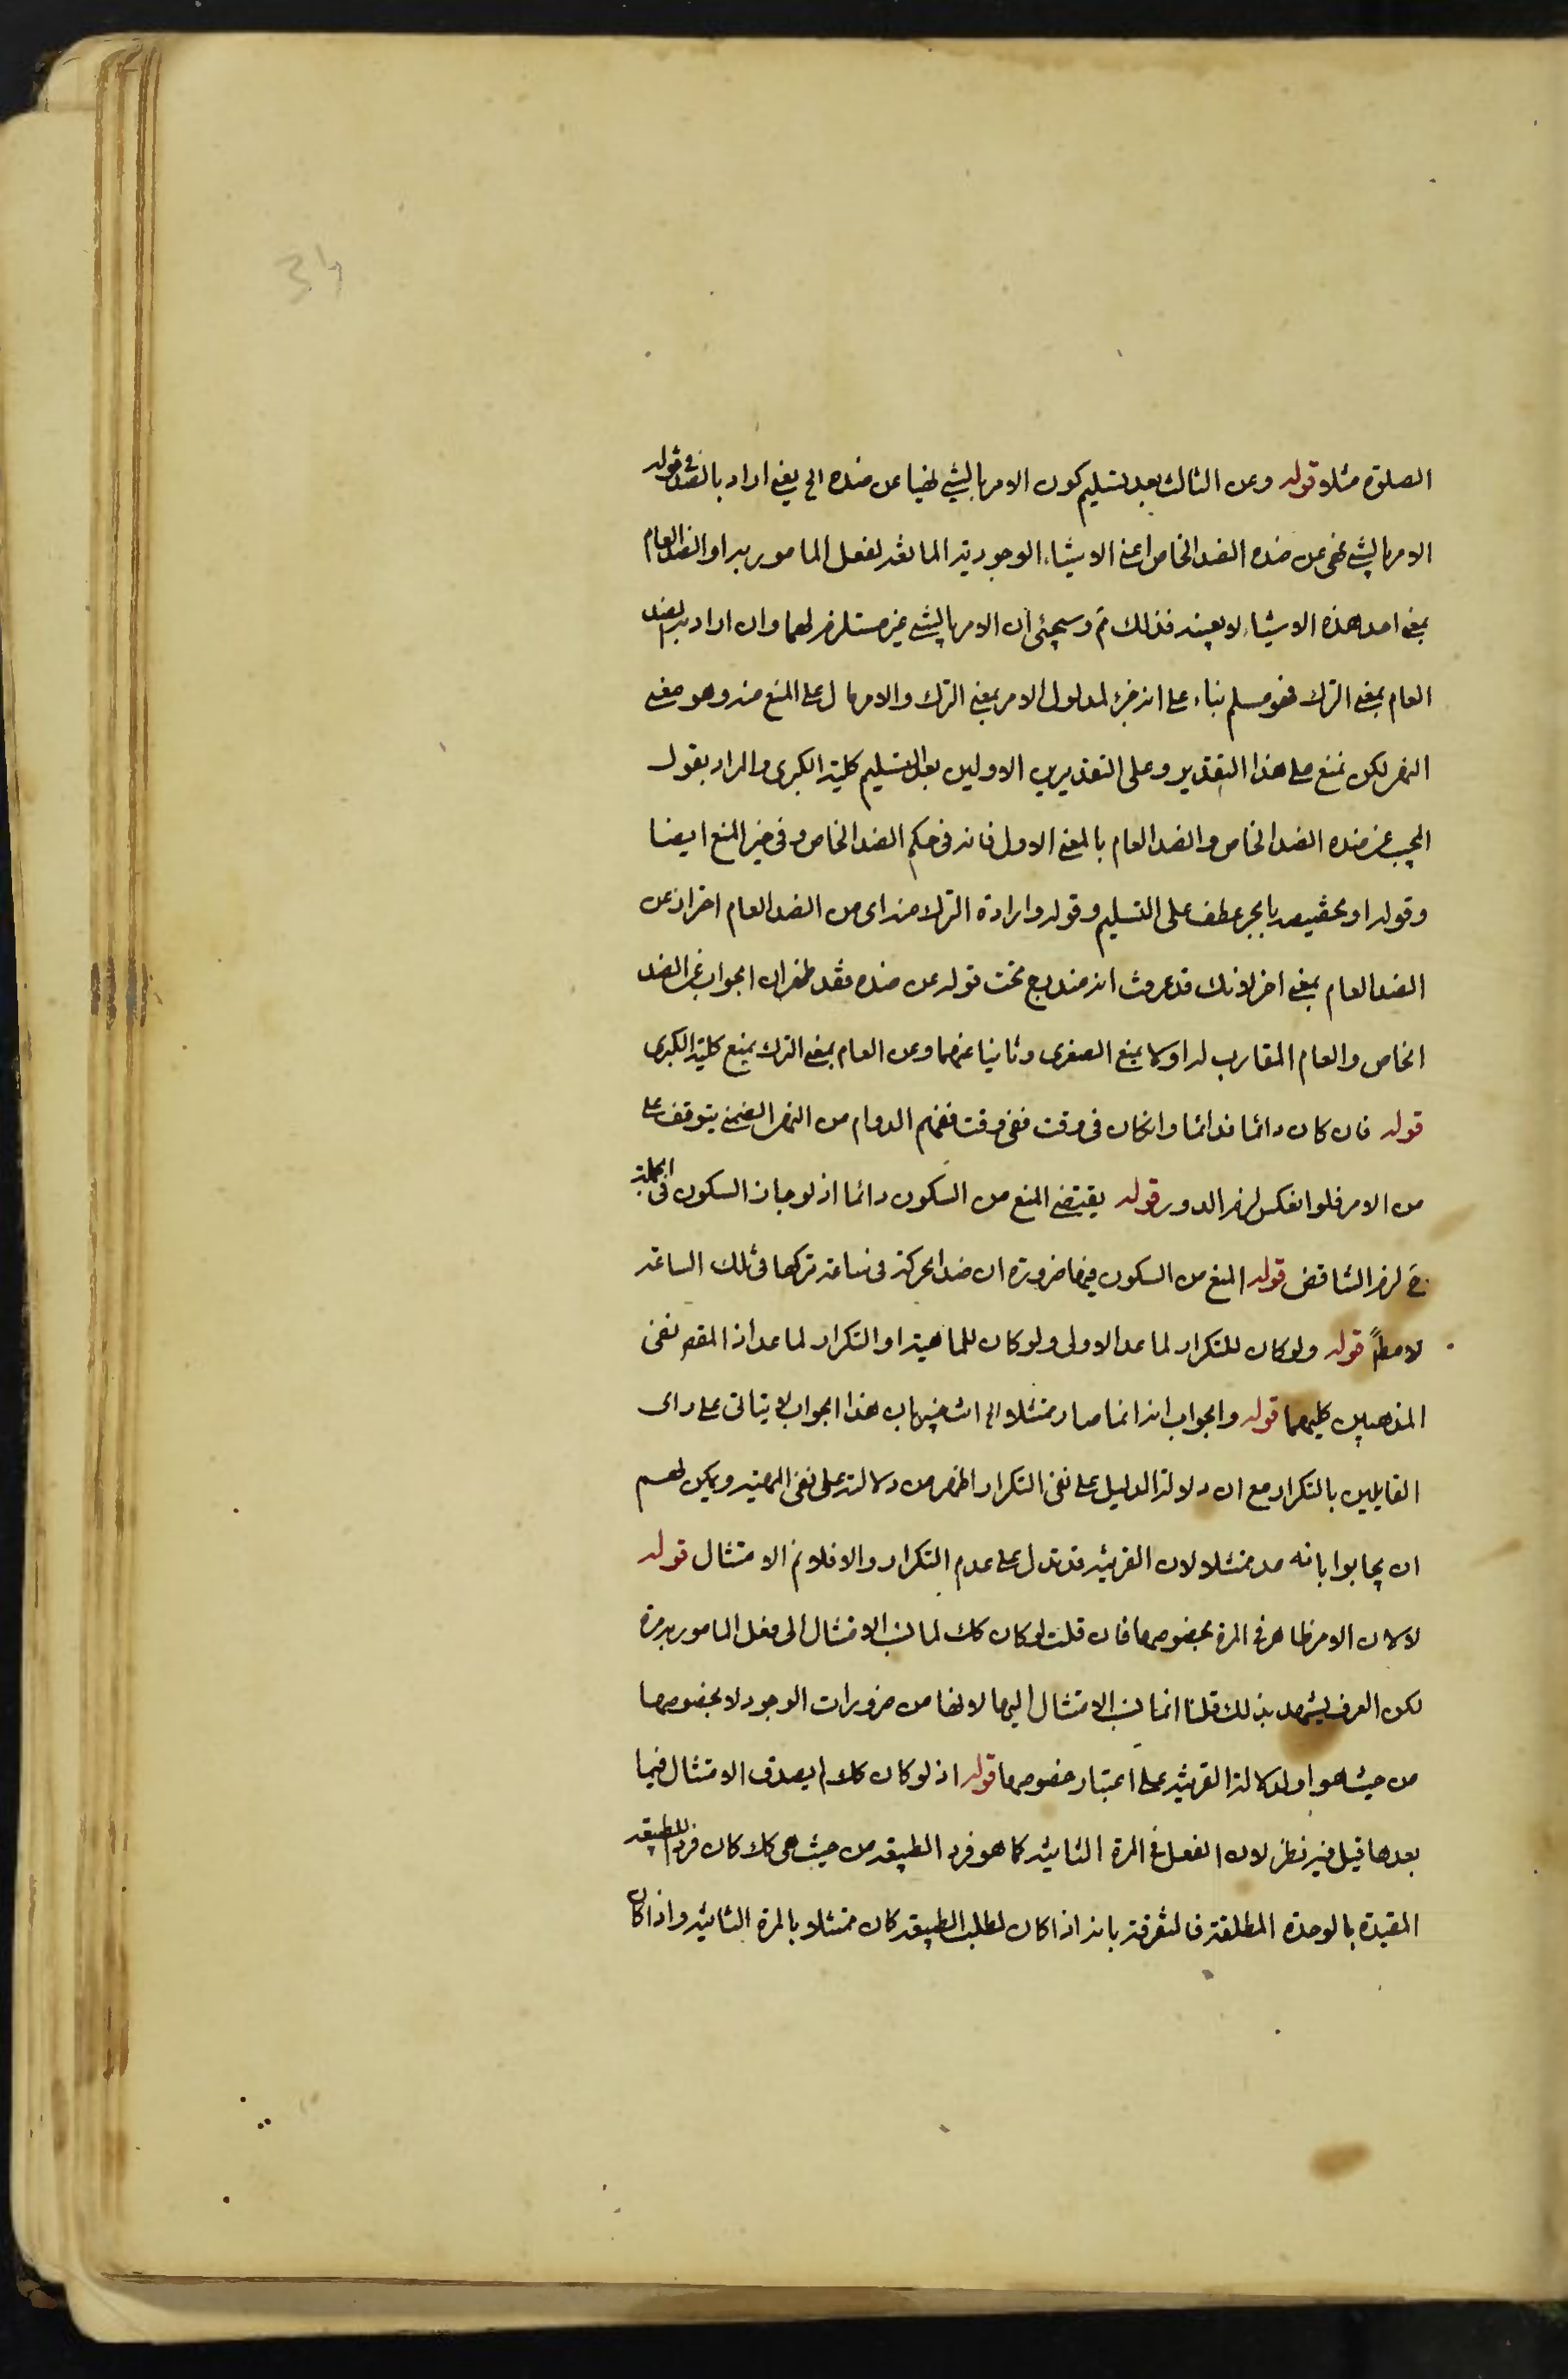 34
الصلوة مثلا قوله وعن الثالث بعد تسليم كون الامر بالشئ نهيا عن ضده الخ يعنى اراد بالضد فى قوله
الامر بالشئ نهى عن ضده الضد الخاص اعنى الاشياء الوجودية المانعة لفعل المامور به او الضد العام
بمعنى احد هذه الاشياء لا بعينه فذلك مم وسيجئ ان الامر بالشئ غير مستلزم لهما وان اراد به الضد
العام بمعنى الترك فهو مسلم بناء على انه جزء لمدلول الامر بمعنى الترك والامر دال على المنع منه وهو معنى
النهى لكن نمنع على هذا التقدير وعلى التقديرين الاولين بعد التسليم كلية الكبرى والمراد بقول
المجيب عن ضده الضد الخاص والضد العام بالمعنى الاول فانه فى حكم الضد الخاص وفى حيز المنع ايضا
وقوله او تخصيصه بالجر عطف على التسليم وقوله وارادة الترك منه اى من الضد العام احتراز عن
الضد العام بمعنى اخر لانك قد عرفت انه مندرج تحت قوله عن ضده فقد ظهر ان الجواب عن الضد
الخاص والعام المقارب له اولا بمنع الصغرى وثانيا عنهما وعن العام بمعنى الترك بمنع كلية الكبرى
قوله فان كان دائما فدائما وانكان فى وقت ففى وقت ففهم الدوام من النهى الضمنى يتوقف على
من الامر فلو انعكس لزم الدور قوله يقتضى المنع من السكون دائما اذ لو جاز السكون فى الجملة
ح لزم التناقض قوله المنع من السكون فيها ضرورة ان ضد الحركة فى ساعة تركها فى تلك الساعة
لا مطلقا قوله ولو كان للتكرار لما عد الاولى ولو كان للماهية او التكرار لما عد اذ المقصود نفى
المذهبين كليهما قوله والجواب انه انما صار ممتثلا الى اشير بان هذا الجواب لا يتاتى على راى
القايلين بالتكرار مع ان دلالة الدليل على نفى التكرار اظهر من دلالته على نفى المهية ويمكن لهم
ان يجابوا بانه عد ممتثلا لان القرينة قد تدل على عدم التكرار والا فلا نم الامتثال قوله
لا لان الامر ظاهر فى المرة بخصوصها فان قلت لو كان كك لما نسب الامتثال الى فعل المامور به مرة
لكن العرف يشهد بذلك قلنا انما نسب الامتثال اليها لانها من ضرورات الوجود لا بخصوصها
من حيث هو او لدلالة القرينة على اعتبار خصوصها قوله اذ لو كان كك لم يصدق الامتثال فيما
بعدها قيل فيه نظر لان الفعل فى المرة الثانية كما هو فرد الطبيعة من حيث هى كك كان فرد الطبيعة
المقيدة بالوحدة المطلقة فالتفرقة بانه اذا كان لطلب الطبيعة كان ممتثلا بالمرة الثانية واذا كان